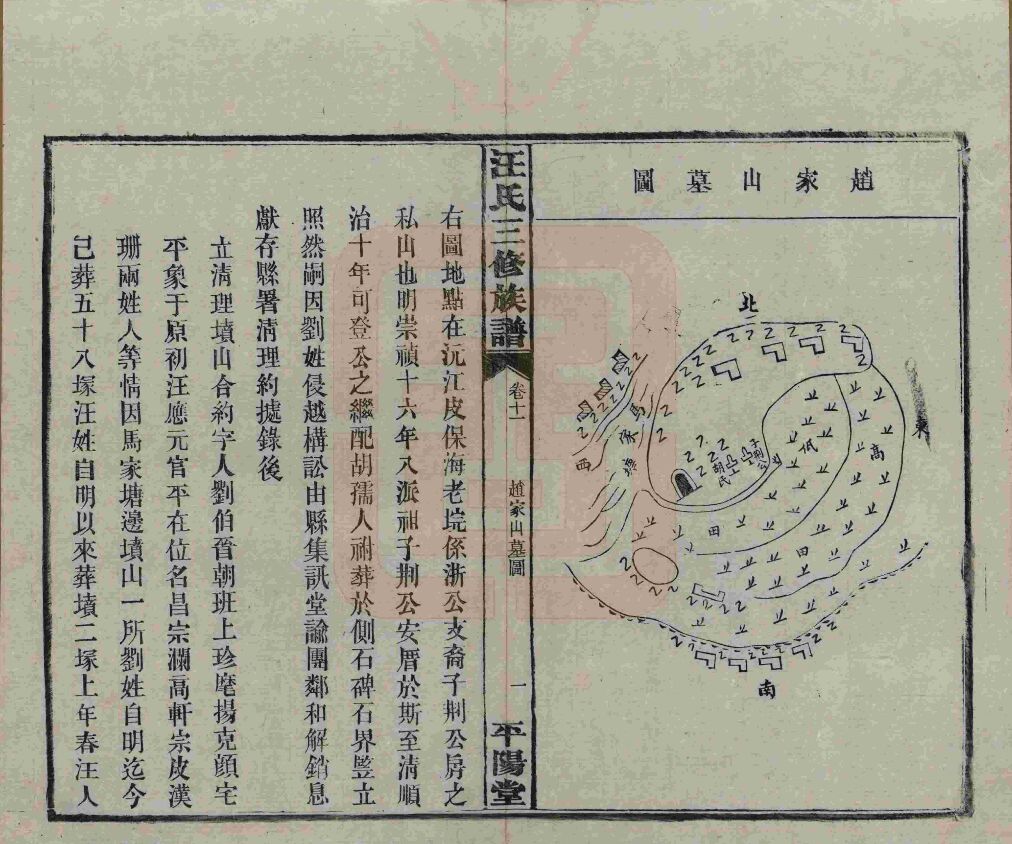 趙家山墓圖
北
東
南
西
高
低
田
田
馬家塘
子荆公
胡氏
汪氏三修族譜
卷十一
趙家山墓圖
一
平陽堂
右圖地點在沅江皮保海老垸係浙公支裔子荆公房之
私山也明崇禎十六年八派祖子荆公安厝於斯至清順
治十年可登公之繼配胡孺人祔葬於側石碑石界豎立
照然嗣因劉姓侵越構訟由縣集訊堂諭團鄰和解銷息
獻存縣署清理約摅錄後
立清理墳山合約字人劉伯晉朝班上珍麾揚克顔宅
平象于原初汪應元官平在位名昌宗瀾高軒宗皮漢
珊兩姓人等情因馬家塘邊墳山一所劉姓自明迄今
己葬五十八塚汪姓自明以來葬墳二塚上年春汪人